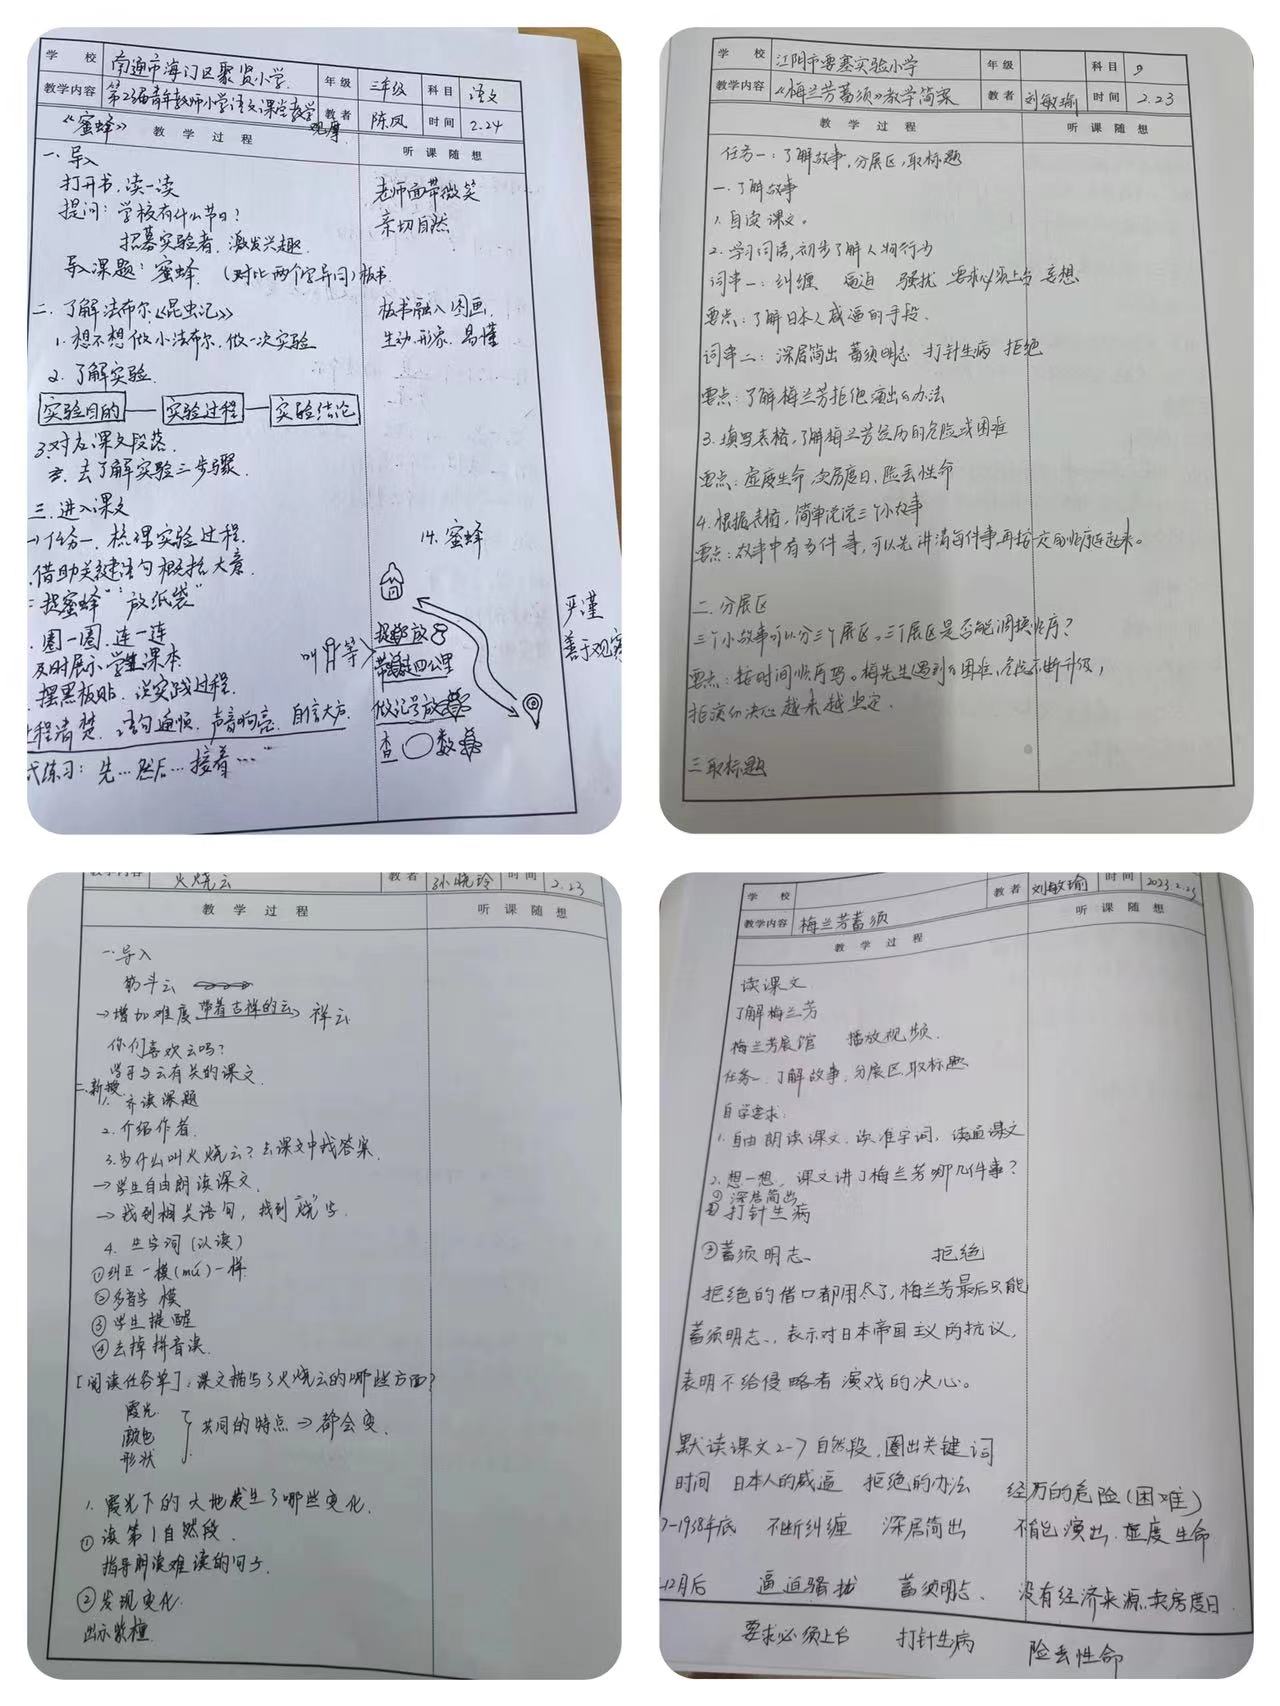 学校 南通市海门区聚贤小学 年级 三年级 科目 语文
教学内容 第23届青年教师小学语文课堂教学观摩 教者 陈凤 时间 2.24
《蜜蜂》 教学过程 听课随想
一.导入
打开书,读一读 老师面带微笑
提问:学校有什么节日? 亲切自然
招募实验者,激发兴趣.
导入课题:蜜蜂.(对比两个字异同)板书
二.了解法布尔《昆虫记》 板书融入图画,
1.想不想做小法布尔,做一次实验 生动.形象.易懂
2.了解实验.
实验目的 — 实验过程 — 实验结论
3.对应课文段落.
去了解实验三步骤.
三.进入课文
任务一.梳理实验过程. 14.蜜蜂
借助关键语句概括大意.
"捉蜜蜂" "放纸袋" 严谨
圈一圈.连一连 叫 等 捉 放 善于观察
及时展示学生课本 带 走四公里
摆黑板贴,说实践过程. 做记号放
过程清楚.语句通顺.声音响亮.自信大方. 查 数
式练习:先…然后…接着…
学校 江阴市要塞实验小学 年级 科目
教学内容 《梅兰芳蓄须》教学简案 教者 刘敏瑜 时间 2.23
教学过程 听课随想
任务一:了解故事,分展区,取标题
一.了解故事
1.自读课文。
2.学习词语,初步了解人物行为
词串一:纠缠 逼迫 骚扰 要求必须上台 妄想
要点:了解日本人威逼的手段.
词串二:深居简出 蓄须明志 打针生病 拒绝
要点:了解梅兰芳拒绝演出的办法
3.填写表格,了解梅兰芳经历的危险或困难
要点:虚度生命 卖房度日 险丢性命
4.根据表格,简单说说三个小故事
要点:故事中有多件事,可以先讲清每件事再按一定的顺序连起来。
二.分展区
三个小故事可以分三个展区,三个展区是否能调换顺序?
要点:按时间顺序写。梅先生遇到的困难、危险不断升级,
拒演的决心越来越坚定.
三取标题
教学内容 火烧云 教者 孙晓玲 时间 2.23
教学过程 听课随想
一.导入
筋斗云
→增加难度 带着吉祥的云 祥云
你们喜欢云吗?
学习与云有关的课文.
二.新授
1.齐读课题
2.介绍作者.
3.为什么叫火烧云?去课文中找答案.
→学生自由朗读课文.
→找到相关语句,找到"烧"字.
4.生字词(认读)
①纠正一模(mú)一样.
②多音字 模
③学生提醒
④去掉拼音读.
[阅读任务单]:课文描写了火烧云的哪些方面?
霞光
颜色 共同的特点→都会变.
形状
1.霞光下的大地发生了哪些变化.
①读第1自然段.
指导朗读难读的句子.
②发现变化.
学校 教者 刘敏瑜 时间 2023.2.23
教学内容 梅兰芳蓄须 听课随想
教学过程
读课文
了解梅兰芳
梅兰芳展馆 播放视频.
任务一.了解故事.分展区.取标题
自学要求:
1.自由朗读课文.读准字词,读通课文
2.想一想,课文讲了梅兰芳哪几件事?
①深居简出
②打针生病
③蓄须明志、 拒绝
拒绝的借口都用尽了,梅兰芳最后只能
蓄须明志,表示对日本帝国主义的抗议,
表明不给侵略者演戏的决心。
默读课文2-7自然段,圈出关键词
时间 日本人的威逼 拒绝的办法 经历的危险(困难)
-1938年底 不断纠缠 深居简出 不能演出.虚度生命
12月后 逼迫骚扰 蓄须明志、 没有经济来源.卖房度日
要求必须上台 打针生病 险丢性命